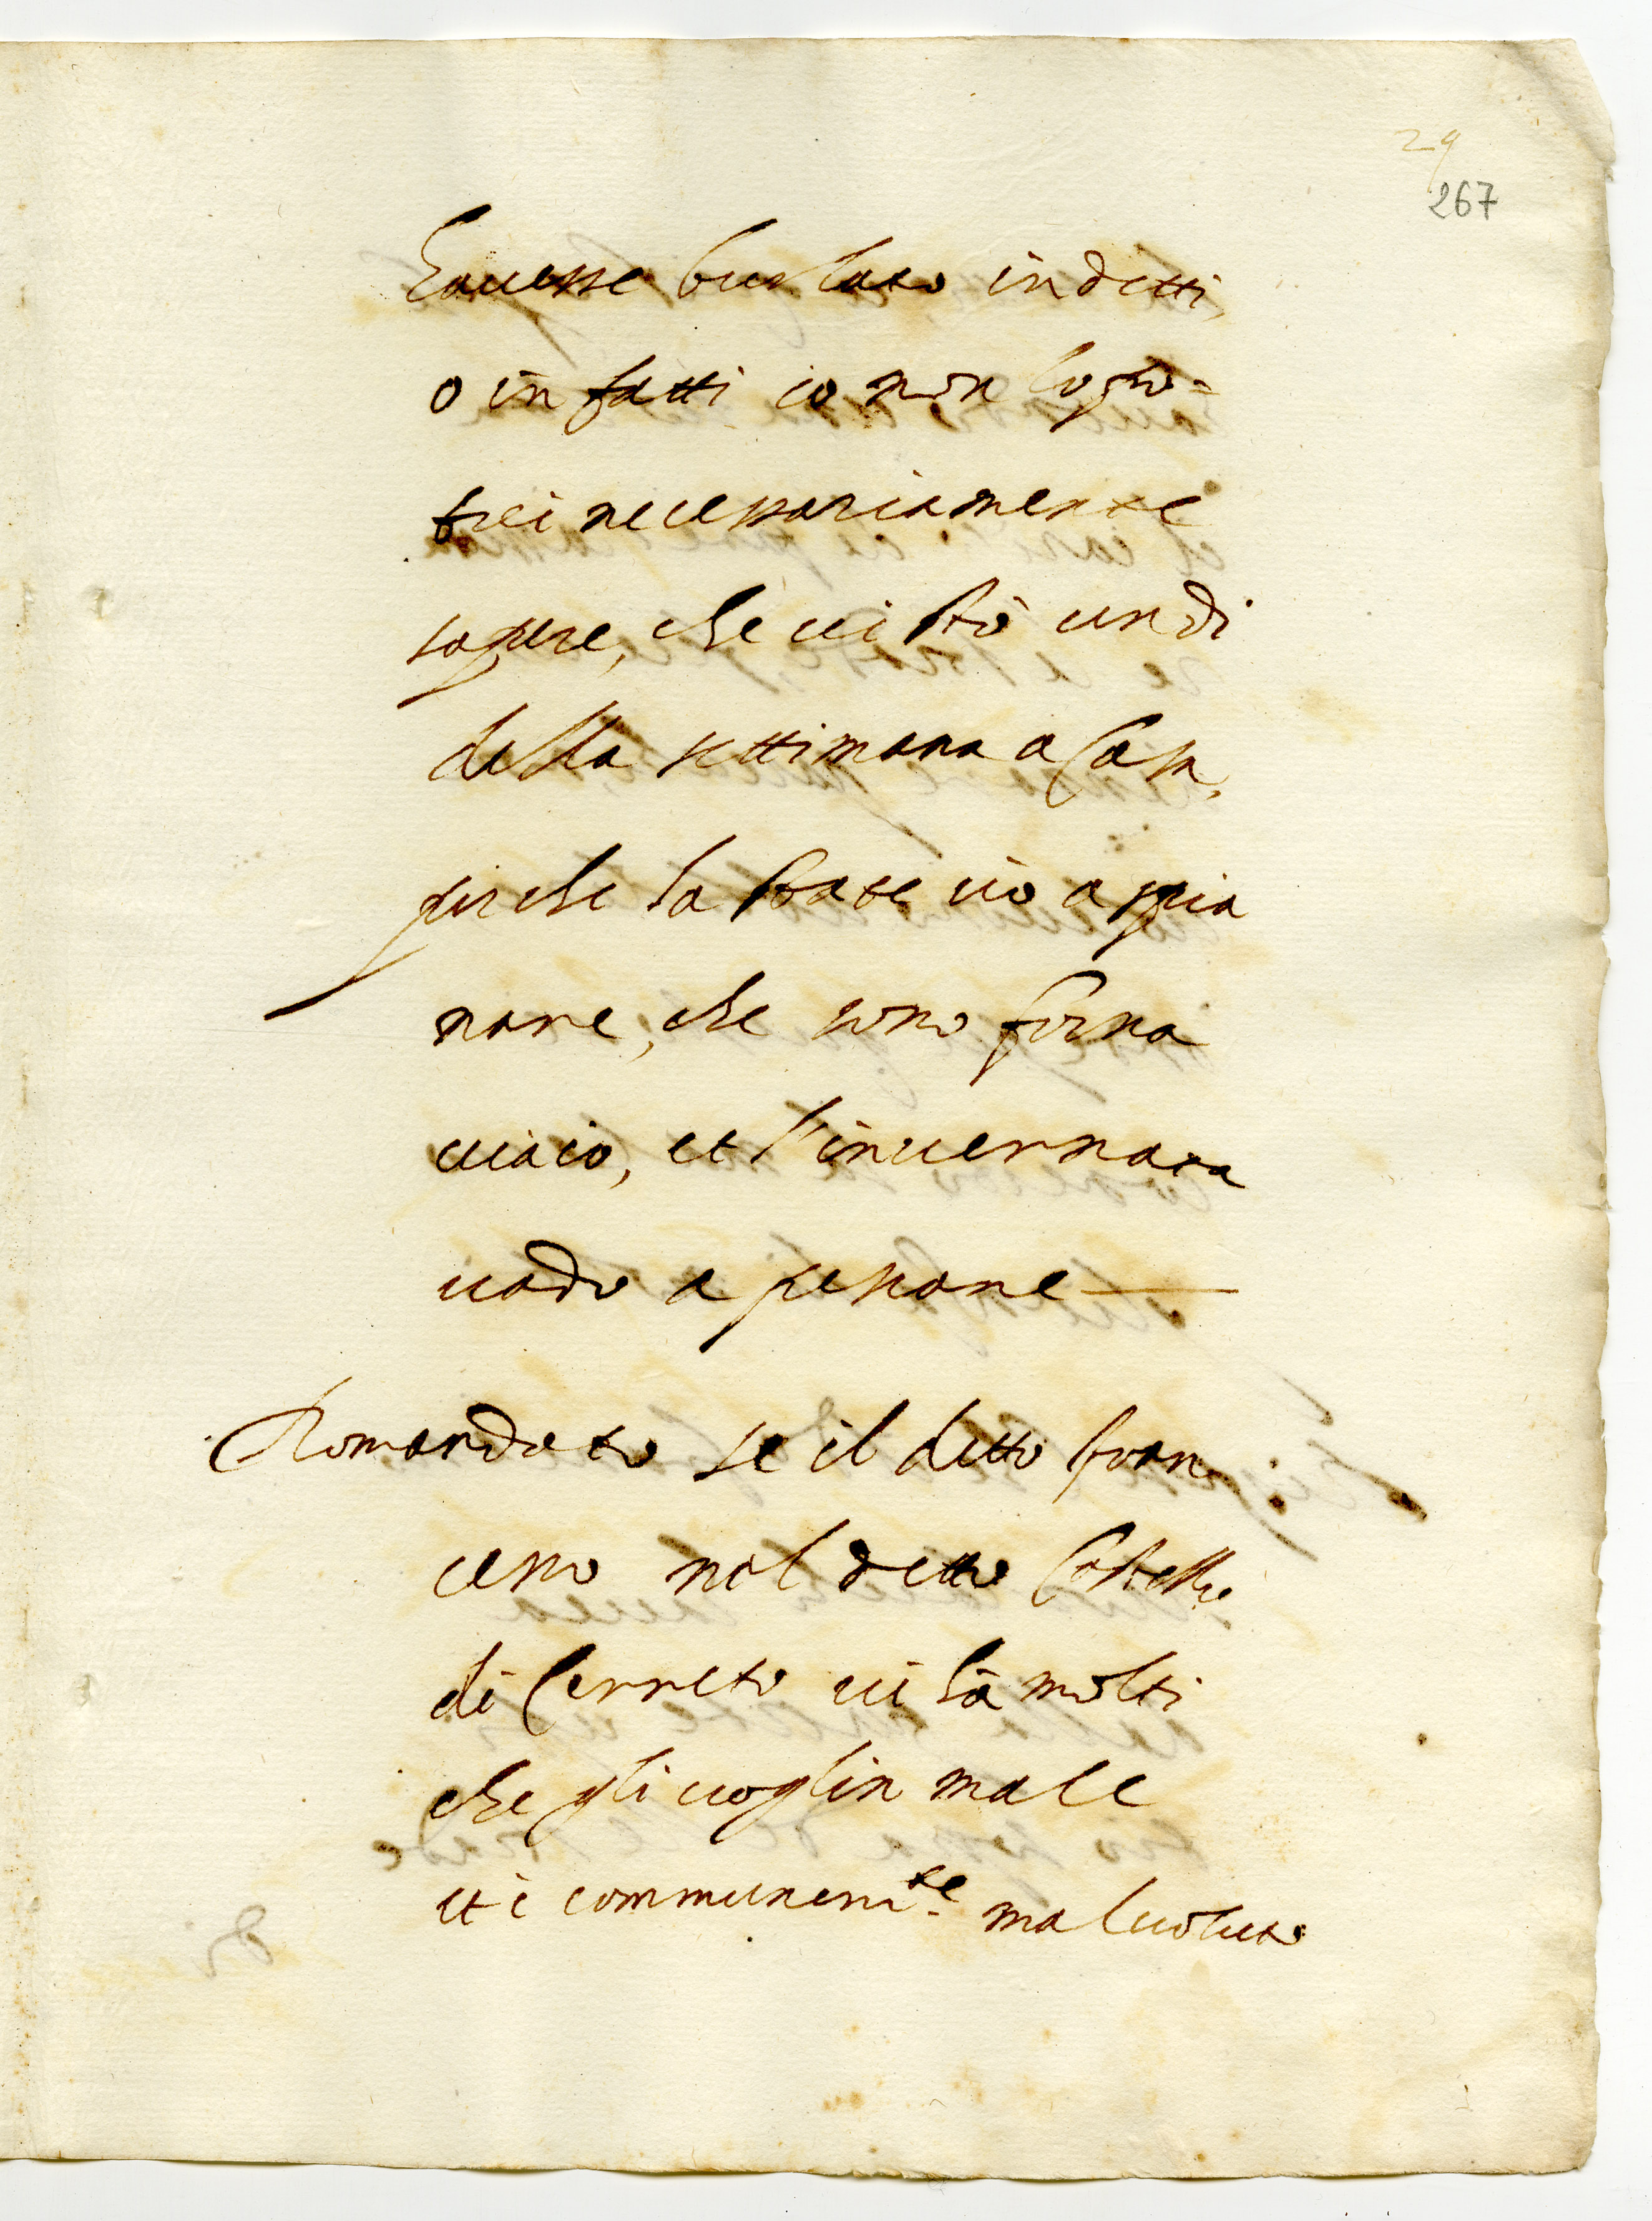 29
267
havesse burlato in detti,
o in fatti io non lo po=
trei necessariamente
sapere, che vi stò un dì
della settimana a casa,
perche la state vò a spia
nare, che sono forna
ciaio, et l'invernata
vado a pescare
Domandato se il detto fran
cesco nel detto Castello
di Cerreto vi hà molti
che gli voglin male
et è communem.te malvoluto